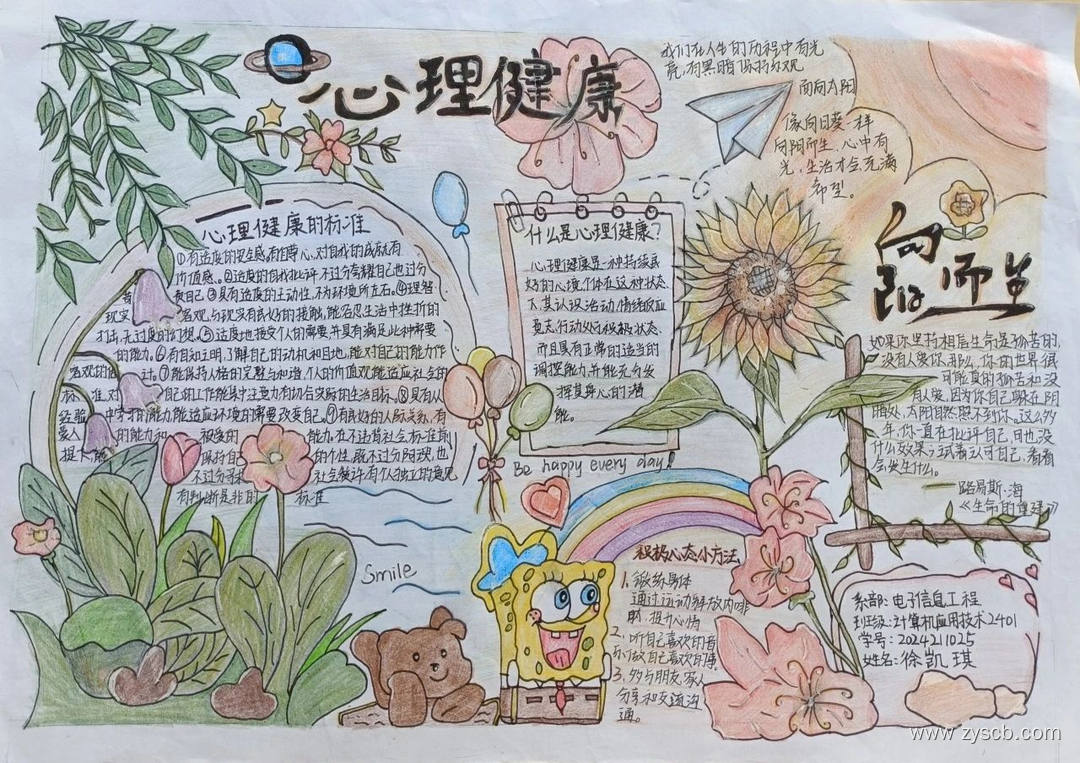 心理健康
我们在人生的历程中有光
亮,有黑暗,保持乐观
面向太阳
像向日葵一样
向阳而生,心中有
光,生活才会充满
希望。
心理健康的标准
①有适度的安全感,有自尊心,对自我的成就有
价值感。②适度的自我批评,不过分夸耀自己也过分
责自己③具有适度的主动性,不为环境所左右。④理智
现实 客观,与现实有良好的接触,能容忍生活中挫折的
打击,无过度的幻想。⑤适度地接受个人的需要,并具有满足此种需要
的能力。⑥有自知之明,了解自己的动机和目地,能对自己的能力作
客观的估 计。⑦能保持人格的完整与和谐,个人的价值观能适应社会的
标 准,对自己的工作能集中注意力有切合实际的生活目标。⑧具有从
经验 中学习的能力,能适应环境的需要改变自己。⑨有良好的人际关系,有
爱人 的能力和 被爱的 能力。在不违背社会标准前
提下能 保持自己 的个性,既不过分阿谀,也
不过分寻求 社会赞许有个人独立的意见
有判断是非的 标准
什么是心理健康?
心理健康是一种持续良
好的心境,个体在这种状态
下,其认识活动,情绪反应
意志,行动处于积极状态,
而且具有正常的适当的
调控能力,并能充分发
挥其身心的潜
能。
Be happy every day!
Smile
积极心态小方法
1、锻练身体
通过运动释放内啡
肽,提升心情
2、听自己喜欢的音
乐,做自己喜欢的事
3、多与朋友、家人
分享和交流沟
通。
向
阳而生
如果你坚持相信生命是孤苦的,
没有人爱你,那么,你的世界很
可能真的孤苦和没
有人爱,因为你自己躲在阴
暗处,太阳自然照不到你。这么多
年,你一直在批评自己,可也没
什么效果,试着认可自己,看看
会发生什么。
— 路易斯·海
《生命的重建》
系部:电子信息工程
班级:计算机应用技术2401
学号:2024211025
姓名:徐凯琪
www.zyscb.com